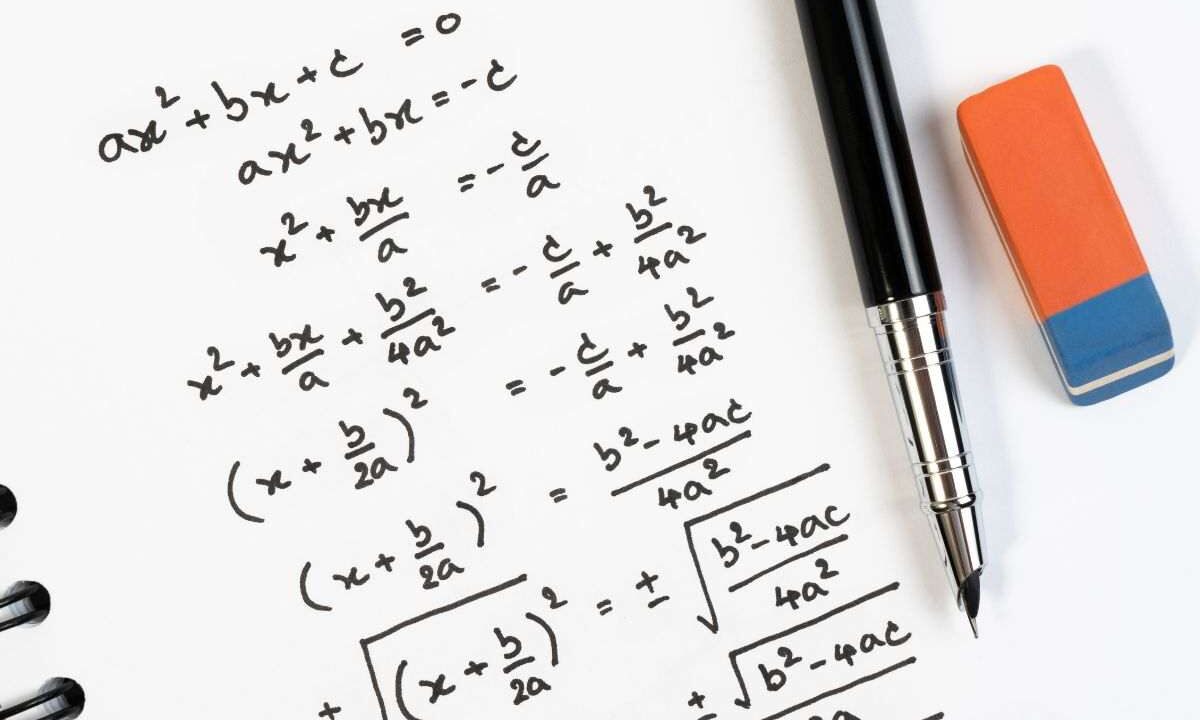 ax² + bx + c = 0
ax² + bx = -c
x² + bx/a = - c/a
x² + bx/a + b²/4a² = - c/a + b²/4a²
(x + b/2a)² = - c/a + b²/4a²
(x + b/2a)² = b² - 4ac/4a²
+ √(x + b/2a)² = ± √b² - 4ac/4a²
± √b² - 4ac/2a